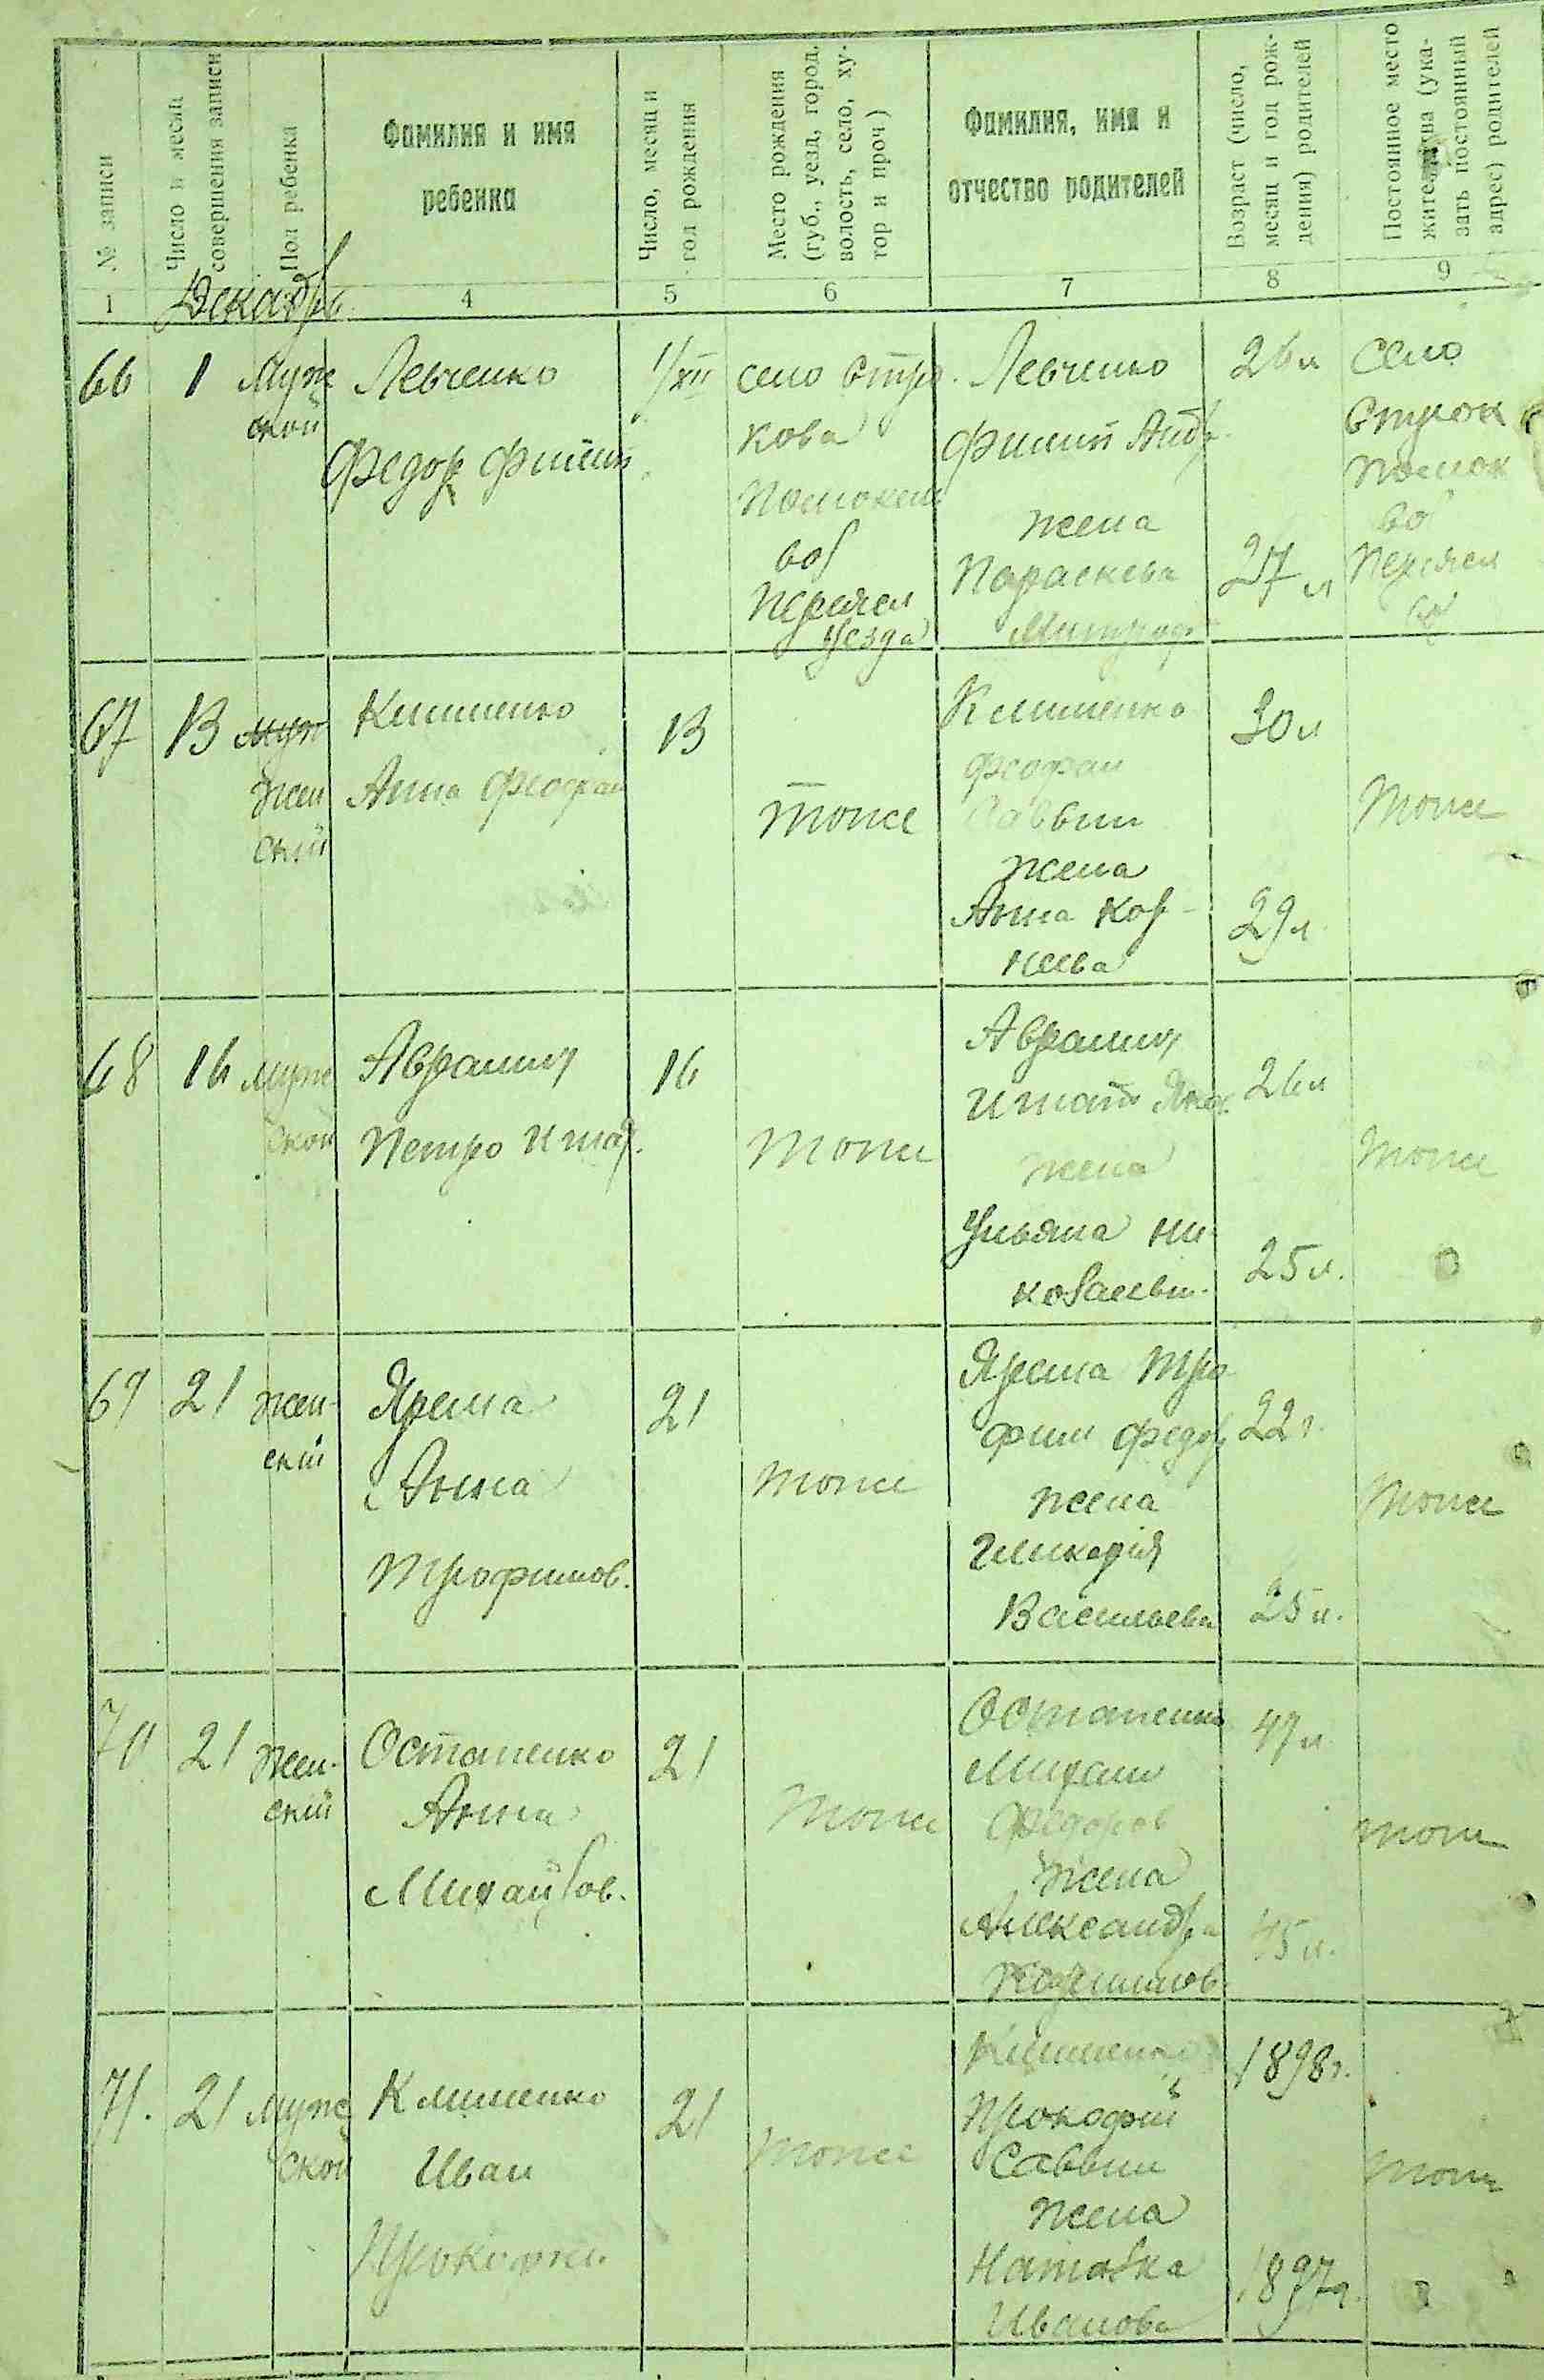 № записи
Число и месяц
совершения записи
Пол ребенка
Фамилия и имя
ребенка
Число, месяц и
год рождения
Место рождения
(губ., уезд, город,
волость, село, ху-
тор и проч)
Фамилия, имя и
отчество родителей
Возраст (число,
месяц и год рож-
дения) родителей
Постоянное место
жительства (ука-
зать постоянный
адрес) родителей
1 4 5 6 7 8 9
Декабрь
66 1 Муж
ской
Левченко
Федор Филип
1/XII
село Стро
кова
вол
Переясл
уезда
Левченко
Филип Андр
жена
Параскева
Митроф
26 л
27 л
село
Строк
вол
Переясл
67 13 муж
жен
ский
Клименко
Анна Феофан
13
тоже
Клименко
Феофан
Саввин
жена
Анна Кор-
неева
30 л
29 л
тоже
68 16 муж
ской
Аврамич
Петро Игнат.
16
тоже
Аврамич
Игнат Яков
жена
Ульяна Ни-
колаевн.
26 л
25 л.
тоже
69 21 жен-
ский
Ярема
Анна
Трофимов.
21
тоже
Ярема Тро
фим Федор
жена
Гликерія
Васильева
22 г.
25 л.
тоже
70 21 жен-
ский
Остапенко
Анна
Михайлов.
21
тоже
Остапенко
Михаил
Федоров
жена
Александра
47 л.
45 л.
тоже
71. 21 муж
ской
Клименко
Иван
Прокофие.
21
тоже
Клименко
Прокофий
Саввин
жена
Наталка
Иванова
1898 г.
1897 г.
тоже